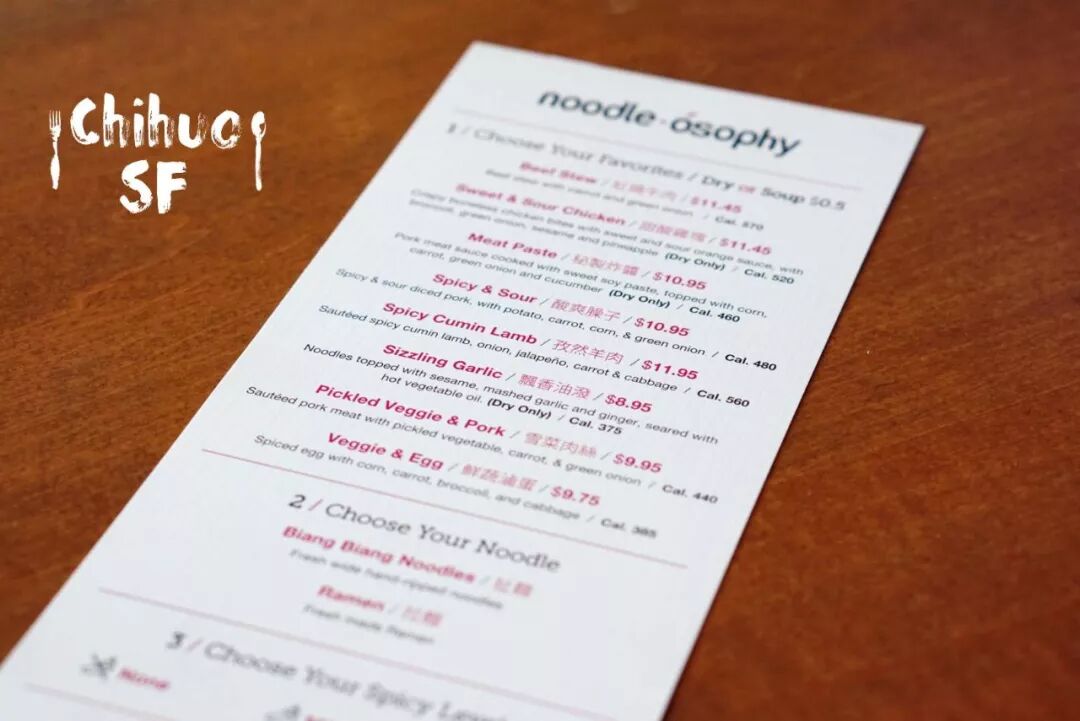 Chihuo
SF
noodle·osophy
1 / Choose Your Favorites / Dry or Soup $0.5
Beef Stew / 紅燒牛肉 / $11.45
Beef stew with carrot and green onion / Cal. 570
Sweet & Sour Chicken / 甜酸雞塊 / $11.45
Crispy boneless chicken bites with sweet and sour orange sauce, with
broccoli, green onion, sesame and pineapple (Dry Only) / Cal. 520
Meat Paste / 秘製炸醬 / $10.95
Pork meat sauce cooked with sweet soy paste, topped with corn,
carrot, green onion and cucumber (Dry Only) / Cal. 460
Spicy & Sour / 酸爽臊子 / $10.95
Spicy & sour diced pork, with potato, carrot, corn, & green onion / Cal. 480
Spicy Cumin Lamb / 孜然羊肉 / $11.95
Sautéed spicy cumin lamb, onion, jalapeño, carrot & cabbage / Cal. 560
Sizzling Garlic / 飄香油潑 / $8.95
Noodles topped with sesame, mashed garlic and ginger, seared with
hot vegetable oil. (Dry Only) / Cal. 375
Pickled Veggie & Pork / 雪菜肉絲 / $9.95
Sautéed pork meat with pickled vegetable, carrot, & green onion / Cal. 440
Veggie & Egg / 鮮蔬滷蛋 / $9.75
Spiced egg with corn, carrot, broccoli, and cabbage / Cal. 385
2 / Choose Your Noodle
Biang Biang Noodles / 扯麵
Fresh wide hand-ripped noodles
Ramen / 拉麵
Fresh made Ramen
3 / Choose Your Spicy Level
None